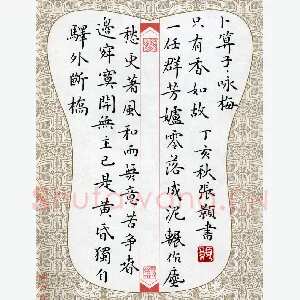 驛外斷橋
邊寂寞開無主已是黃昏獨自
愁更著風和雨無意苦爭春
一任群芳妒零落成泥輾作塵
只有香如故 丁亥秋張顥書
卜算子·咏梅